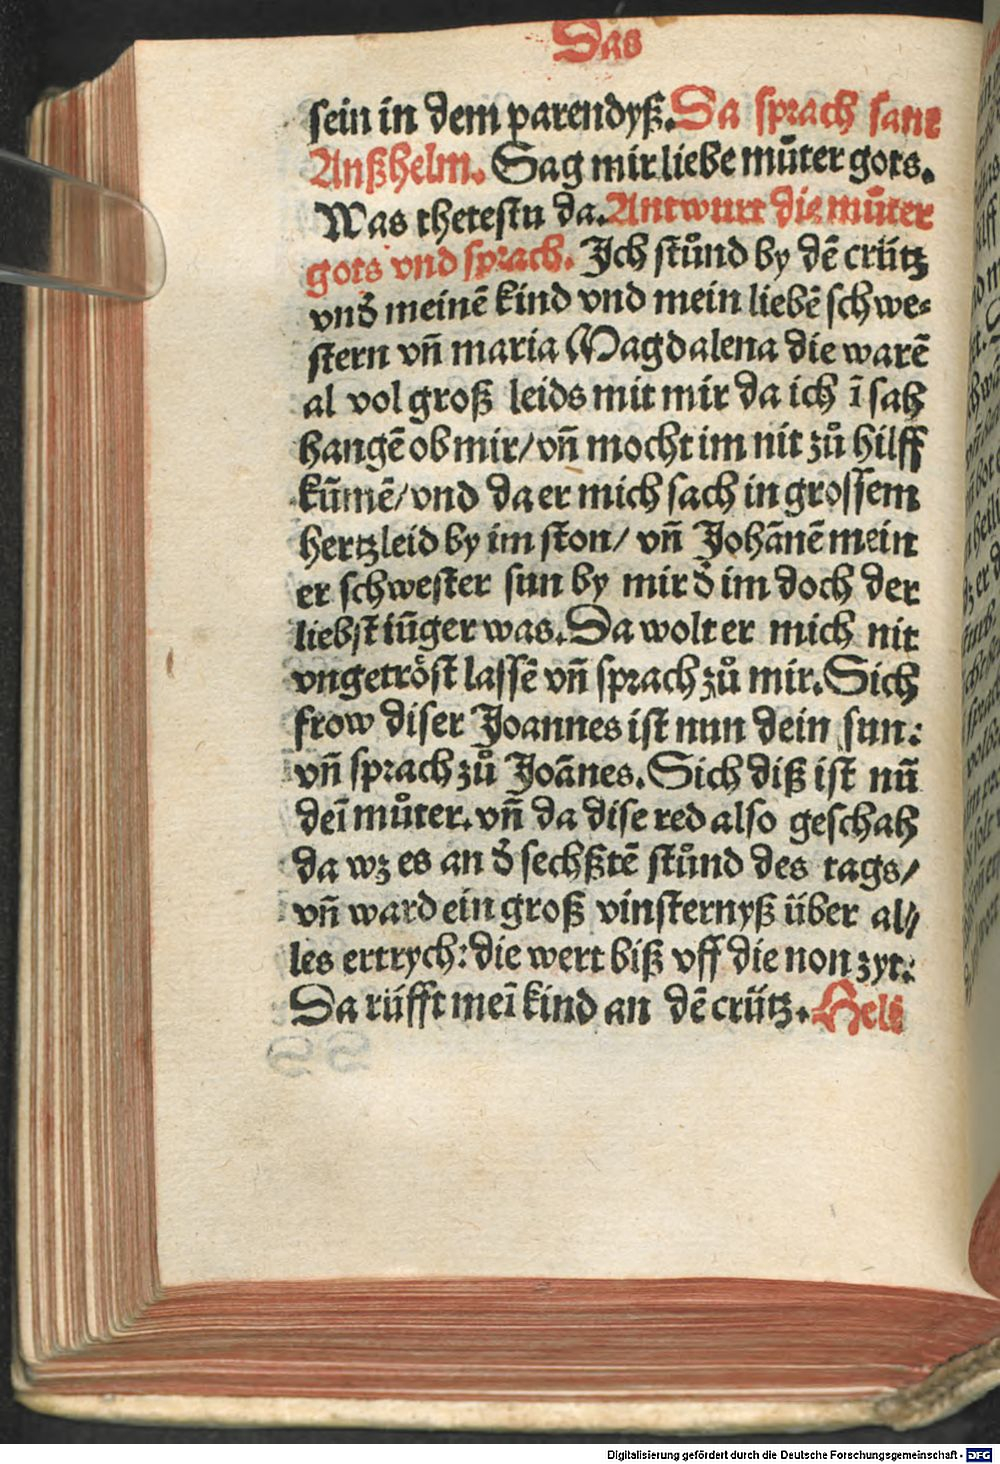 Das
sein in dem parendyß. Da sprach sant
Anßhelm. Sag mir liebe můter gots.
Was thetestu da. Antwurt die můter
gots vnd sprach. Ich stůnd by dē crütz
vnd̕ meinē kind vnd mein liebē schwe⸗
stern vñ maria Magdalena die warē
al vol groß leids mit mir da ich ī sah
hangē ob mir/ vñ mocht im nit zů hilff
kūmē/ vnd da er mich sach in grossem
hertzleid by im ston/ vñ Johānē mein
er schwester sun by mir d̕ im doch der
liebst iūger was. Da wolt er mich nit
vngetröst lassē vñ sprach zů mir. Sich
frow diser Joannes ist nun dein sun:
vñ sprach zů Joānes. Sich diß ist nū
deī můter. vñ da dise red also geschah
da wz es an d̕ sechßtē stůnd des tags/
vñ ward ein groß vinsternyß über al⸗
les ertrych: die wert biß vff die non zyt:
Da rüfft meī kind an dē crütz. Heli
Digitalisierung gefördert durch die Deutsche Forschungsgemeinschaft - DFG